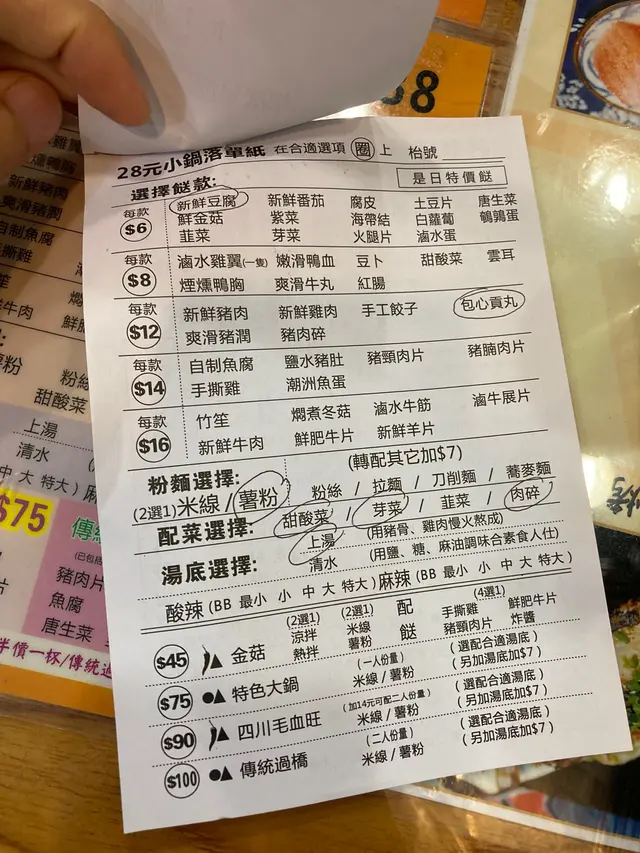 28元小鍋落單紙 在合適選項 圈 上 枱號
選擇餸款: 是日特價餸
每款 $6 新鮮豆腐 新鮮番茄 腐皮 土豆片 唐生菜
鮮金菇 紫菜 海帶結 白蘿蔔 鵪鶉蛋
韮菜 芽菜 火腿片 滷水蛋
每款 $8 滷水雞翼(一隻) 嫩滑鴨血 豆卜 甜酸菜 雲耳
煙燻鴨胸 爽滑牛丸 紅腸
每款 $12 新鮮豬肉 新鮮雞肉 手工餃子 包心貢丸
爽滑豬潤 豬肉碎
每款 $14 自制魚腐 鹽水豬肚 豬頸肉片 豬腩肉片
手撕雞 潮洲魚蛋
每款 $16 竹笙 燜煮冬菇 滷水牛筋 滷牛展片
新鮮牛肉 鮮肥牛片 新鮮羊片
粉麵選擇: (轉配其它加$7)
(2選1)米線 / 薯粉 粉絲 / 拉麵 / 刀削麵 / 蕎麥麵
配菜選擇: 甜酸菜 / 芽菜 / 韮菜 / 肉碎
湯底選擇: 上湯 (用豬骨、雞肉慢火熬成)
清水 (用鹽、糖、麻油調味合素食人仕)
酸辣 (BB 最小 小 中 大 特大) 麻辣 (BB 最小 小 中 大 特大)
$45 金菇 (2選1) 涼拌 熱拌 (2選1) 米線 薯粉 配餸 (4選1) 手撕雞 鮮肥牛片 豬頸肉片 炸醬
$75 特色大鍋 (一人份量) 米線 / 薯粉 (選配合適湯底) (另加湯底加$7)
$90 四川毛血旺 (加14元可配二人份量) 米線 / 薯粉 (選配合適湯底) (另加湯底加$7)
$100 傳統過橋 (二人份量) 米線 / 薯粉 (選配合適湯底) (另加湯底加$7)
8
煙燻鴨胸
新鮮豬肉
爽滑豬潤
自制魚腐
手撕雞
竹笙
粉絲
甜酸菜
上湯
清水
中 大 特大) 麻
$75
豬肉片
魚腐
唐生菜
半價一杯/傳統過